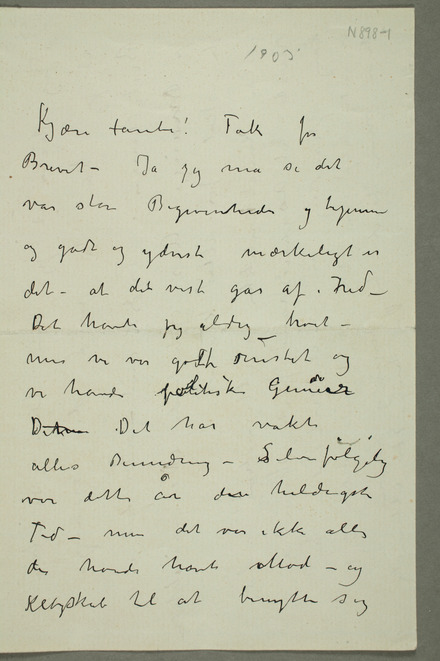 N 898-1
1905
Kjære tante! Tak for
Brevet – Ja jeg må si det
var store Begivenheder og
og godt og yderst mærkeligt er
det – at det vist gås af i Fred –
Det havde jeg aldrig troet –
men vi var godt rustet og
vi havde politiske Genier
Det har vakt
alles Beundring – Selvfølgelig
var dette år den heldigste
Tid – men det var ikke alle
der havde havt Mod – og
Klogskab til at benytte sig